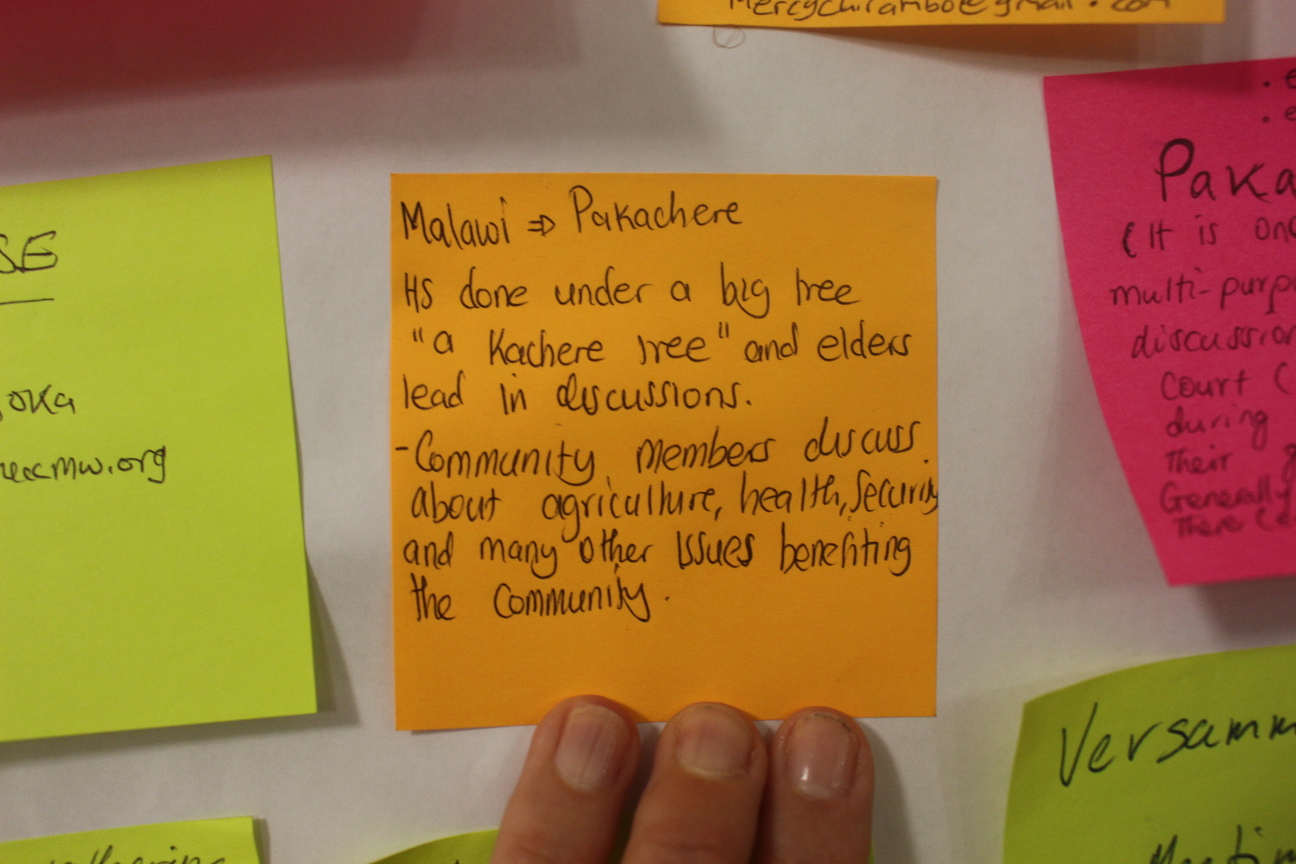 Mercychirambo@gmail.com
SE
oka
eccmw.org
Malawi ⇒ Pakachere
Its done under a big tree
"a Kachere tree" and elders
lead in discussions.
-Community members discuss
about agriculture, health, Security
and many other issues benefiting
the community.
Paka
(It is on
multi-purp
discussion
Court (
during
their
Generally
there (
Versamm